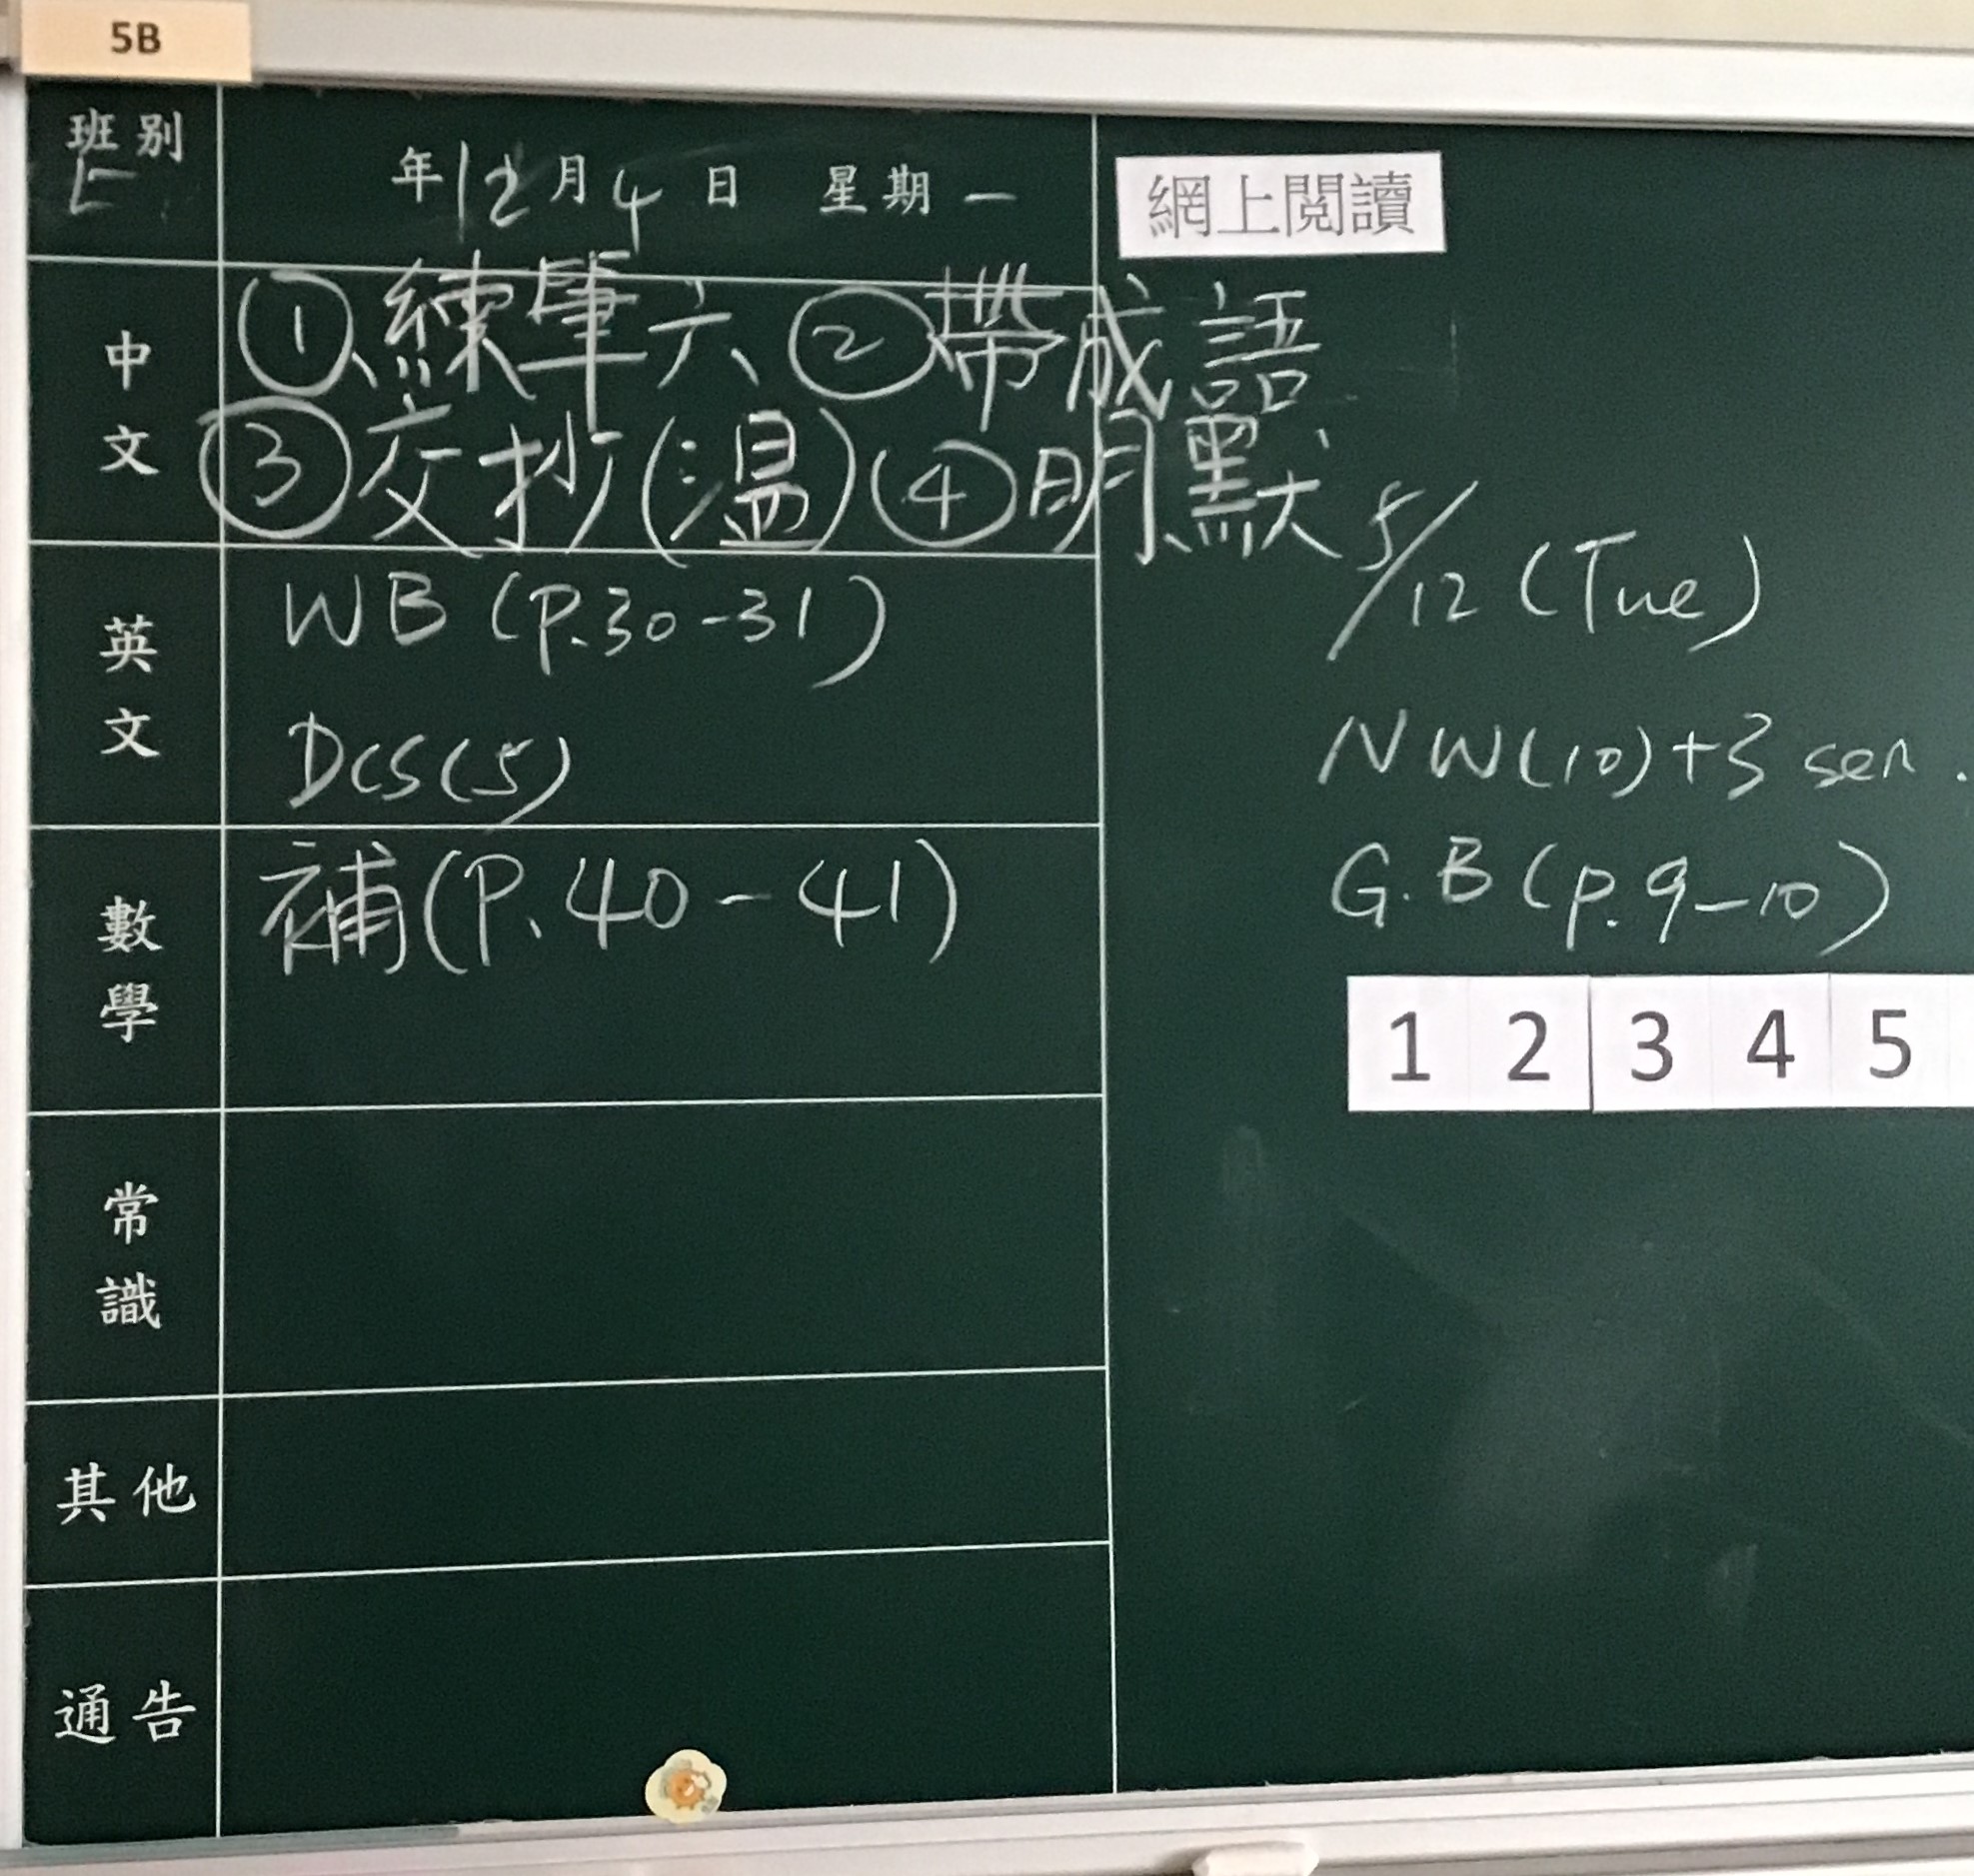 5B
班別
年12月4日 星期一
網上閱讀
中文
①練筆六 ②帶成語
③交抄(溫) ④明默
英文
WB (P.30-31)
Dcs(5)
5/12 (Tue)
NW(10)+3 sen.
G.B (p.9-10)
1 2 3 4 5
數學
補(P.40-41)
常識
其他
通告